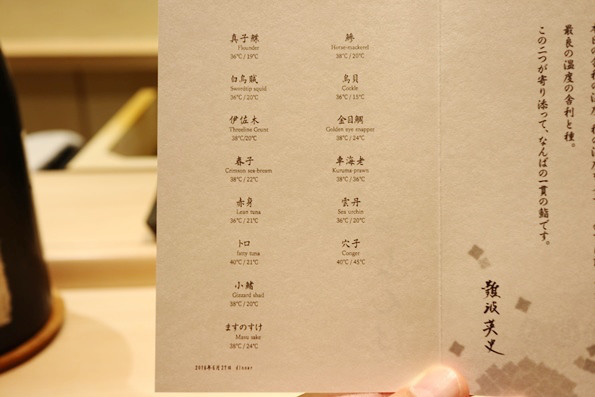 真子鰈
Flounder
36℃/19℃
白烏賊
Swordtip squid
36℃/21℃
伊佐木
Threeline Grunt
38℃/20℃
春子
Crimson sea bream
38℃/22℃
赤身
Lean tuna
36℃/21℃
トロ
fatty tuna
40℃/21℃
小鰭
Gizzard shad
38℃/20℃
ますのすけ
Masu sake
38℃/24℃
鯵
Horse-mackerel
38℃/20℃
鳥貝
Cockle
36℃/15℃
金目鯛
Golden eye snapper
38℃/24℃
車海老
Kuruma prawn
38℃/36℃
雲丹
Sea urchin
36℃/20℃
穴子
Conger
40℃/45℃
2016年6月27日 dinner
最良の温度の舎利と種。
この二つが寄り添って、なんばの一貫の鮨です。
難波英史